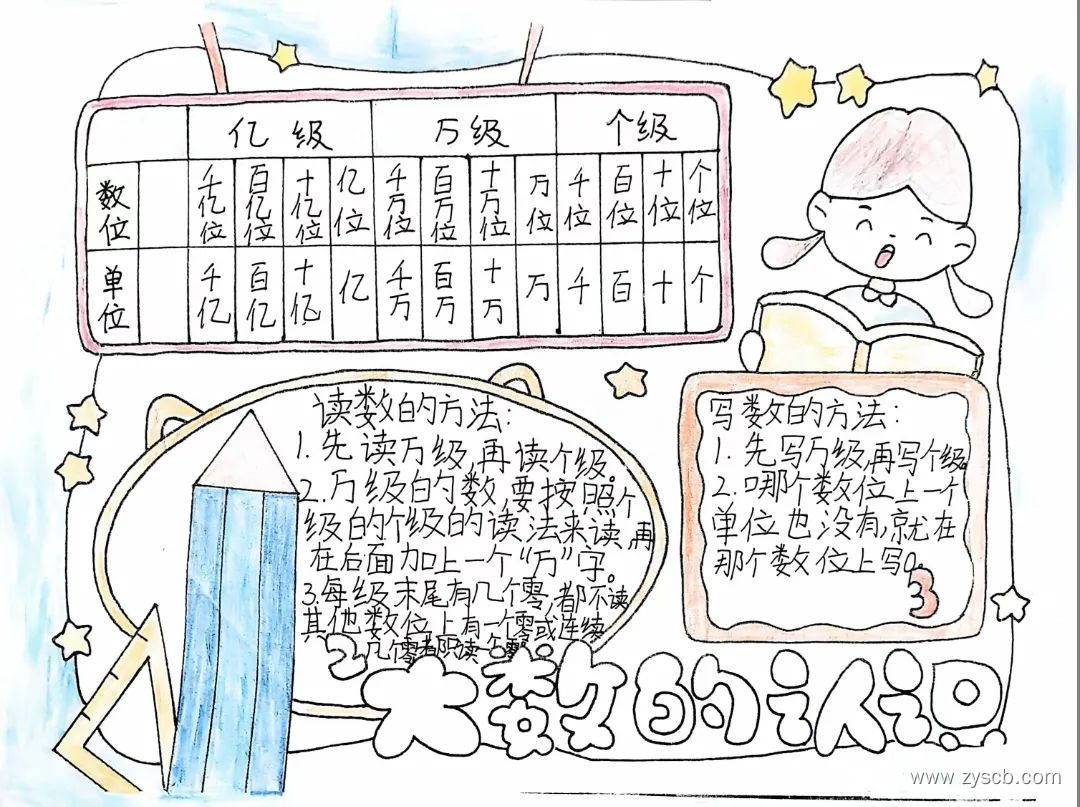 亿级 万级 个级
数位 千亿位 百亿位 十亿位 亿位 千万位 百万位 十万位 万位 千位 百位 十位 个位
单位 千亿 百亿 十亿 亿 千万 百万 十万 万 千 百 十 个
读数的方法:
1.先读万级,再读个级。
2.万级的数,要按照个
级的个级的读法来读,再
在后面加上一个“万”字。
3.每级末尾有几个零,都不读
其他数位上有一个零或连续
几个零都只读一个零
2
写数的方法:
1.先写万级,再写个级。
2.哪个数位上一个
单位也没有,就在
那个数位上写0。
3
大数的认识
www.zyscb.com